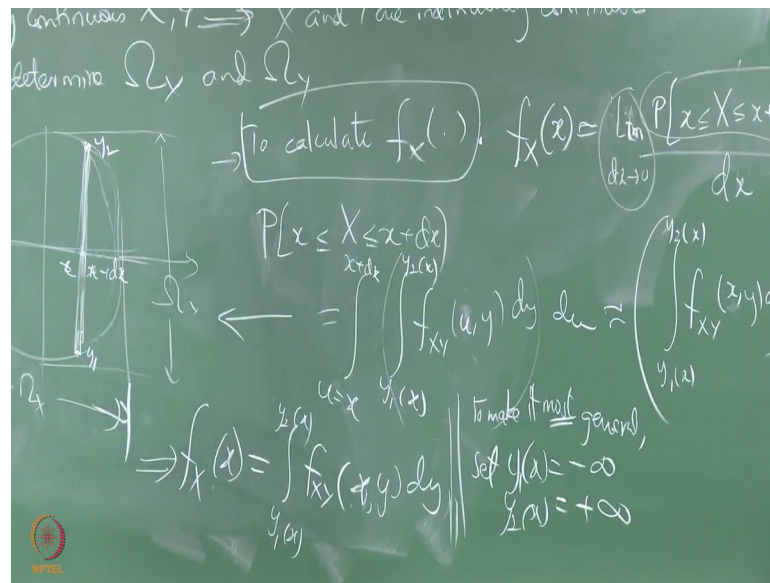 continuous X, Y ⟹ X and Y are individually continuous
determine Ω_X and Ω_Y
→ To calculate f_X(.). f_X(x) = Lim dx→0 P[x ≤ X ≤ x+ / dx
y2
x x+dx
y1
Ω_Y
Ω_X
P[x ≤ X ≤ x+dx)
← = ∫_{u=x}^{x+dx} ( ∫_{y_1(x)}^{y_2(x)} f_{XY}(u, y) dy ) du ≈ ( ∫_{y_1(x)}^{y_2(x)} f_{XY}(x, y) d
⟹ f_X(x) = ∫_{y_1(x)}^{y_2(x)} f_{XY}(x, y) dy
To make it most general,
set y_1(x) = -∞
y_2(x) = +∞
NPTEL